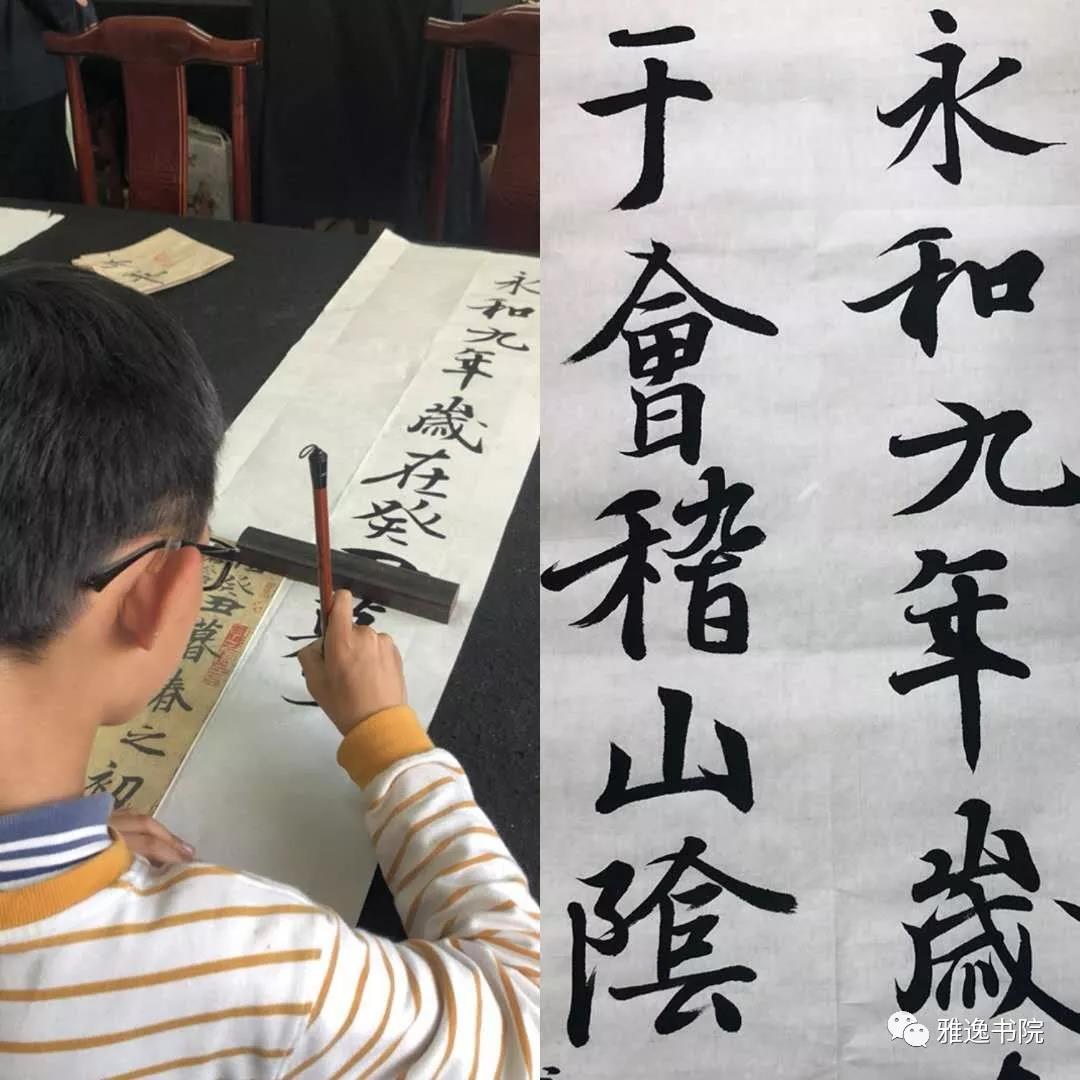 永和九年歲在癸丑
丑暮春之初
永和九年歲
于會稽山陰
雅逸书院